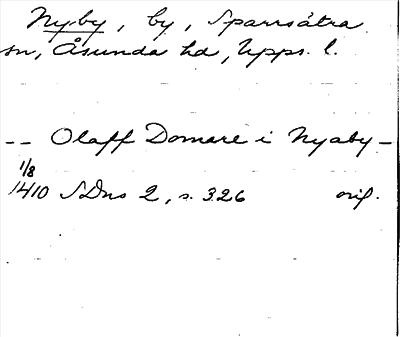 Nyby, by, Sparrsätra
sn, Åsunda hd, Upps. l.
-- Olaff Domare i Nyaby -
1/8
1410 SDns 2, s. 326 orig.